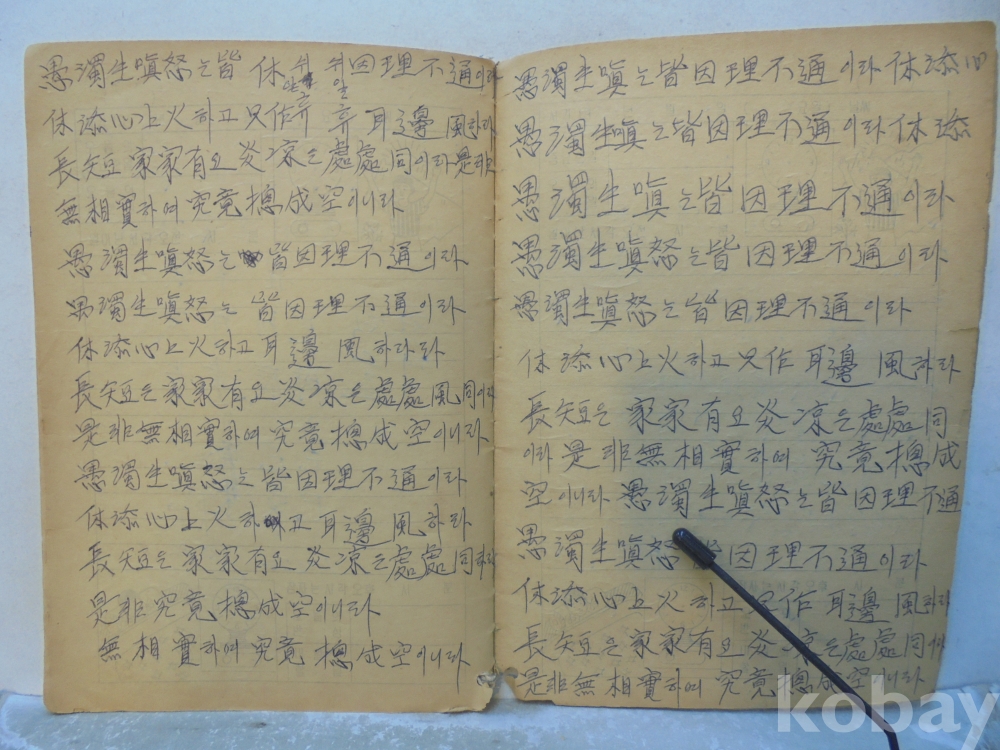 愚濁生嗔怒는皆 休 쉬 쉬 일 因理不通이라
休添心上火하고 只作 耳邊風하라
長短 家家有요 炎凉은 處處同이라 是非
無相實하여 究竟摠成空이니라
愚濁生嗔怒는 皆因理不通이라
愚濁生嗔怒는 皆因理不通이라
休添心上火하고 耳邊 風하라라
長短은 家家有요 炎凉은 處處風同이라
是非無相實하여 究竟摠成空이니라
愚濁生嗔怒는 皆因理不通이라
休添心上火하고 耳邊風하라
長短은 家家有요 炎凉은 處處同하라
是非究竟摠成空이니라
無相實하여 究竟摠成空이니라
愚濁生嗔는 皆因理不通이라 休添心
愚濁生嗔는 皆因理不通이라 休添
愚濁生嗔는 皆因理不通이라
愚濁生嗔怒는 皆因理不通이라
愚濁生嗔怒는 皆因理不通이라
休添心上火하고 只作 耳邊 風하라
長短은 家家有요 炎凉은 處處同
이라 是非無相實하여 究竟摠成
空이니라 愚濁生嗔怒는 皆因理不通
愚濁生嗔怒 皆因理不通이라
休添心上火하고 只作 耳邊 風하라
長短은 家家有요 炎凉은 處處同이라
是非無相實하여 究竟摠成空이니라
kobay